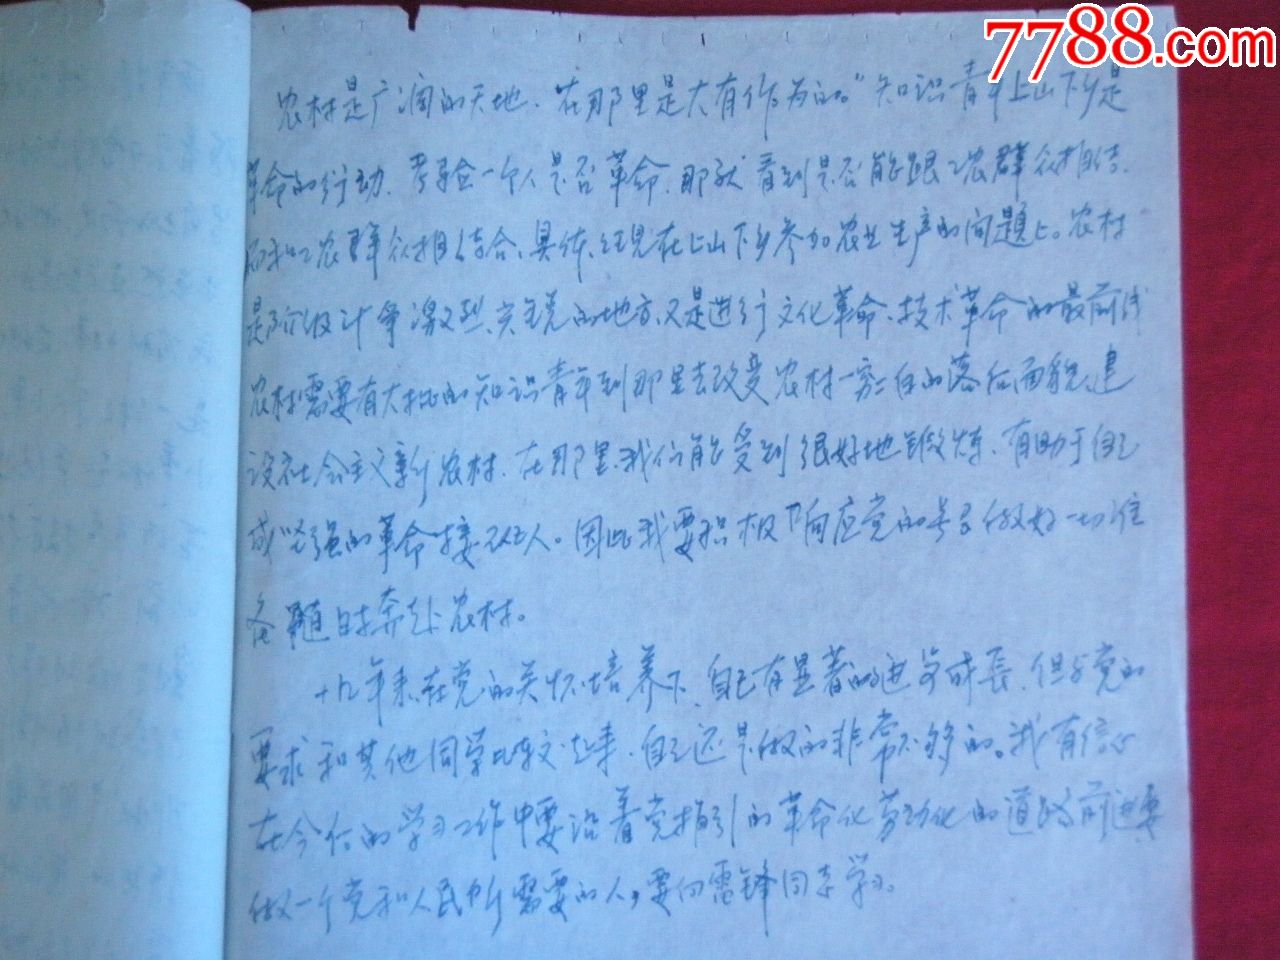 7788.com
农村是广阔的天地、在那里是大有作为的。"知识青年上山下乡是
革命的行动、考验一个人是否革命、那就看到是否能跟工农群众相结、
而和工农群众相结合、具体表现在上山下乡参加农业生产的问题上。农村
是阶级斗争激烈、尖锐的地方、又是进行文化革命、技术革命的最前线
农村需要有大批的知识青年到那里去改变农村一穷二白的落后面貌、建
设社会主义新农村、在那里我们能受到很好地锻炼、有助于自己
成坚强的革命接班人。因此我要积极响应党的号召做好一切准
备随时奔赴农村。
十九年来在党的关怀培养下、自己有显著的进步成长、但与党的
要求和其他同学比较起来、自己还是做的非常不够的。我有信心
在今后的学习工作中要沿着党指引的革命化劳动化的道路前进要
做一个党和人民所需要的人,要向雷锋同志学习。